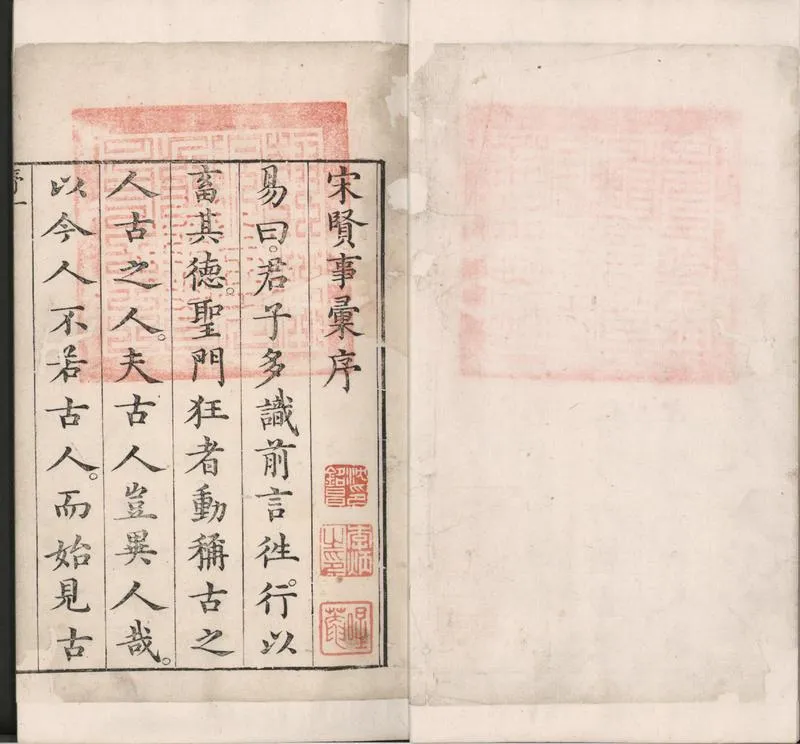 宋賢事彙序
易曰。君子多識前言徃。行以
畜其德。聖門狂者動稱古之
人古之人。夫古人豈異人哉。
以今人不若古人。而始見古
序一